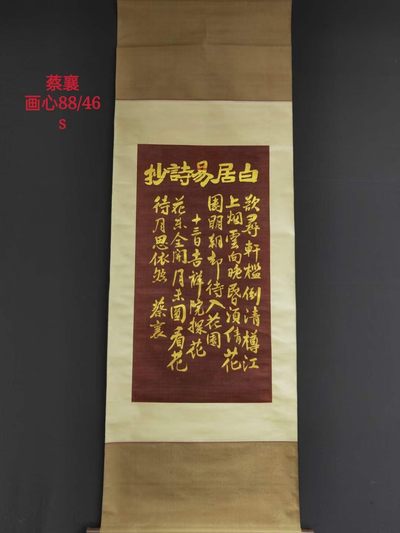 蔡襄
画心88/46
s
白居易詩抄
欲尋軒檻倒清樽江
上烟雲向晚昏須倩花
園明朝却待入花園
十三日吉祥院探花
花未全開月未圓看花
待月思依然 蔡襄